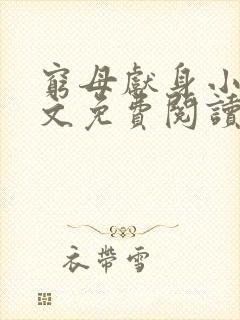 窮母獻身小
文免費閱讀
衣帶雪